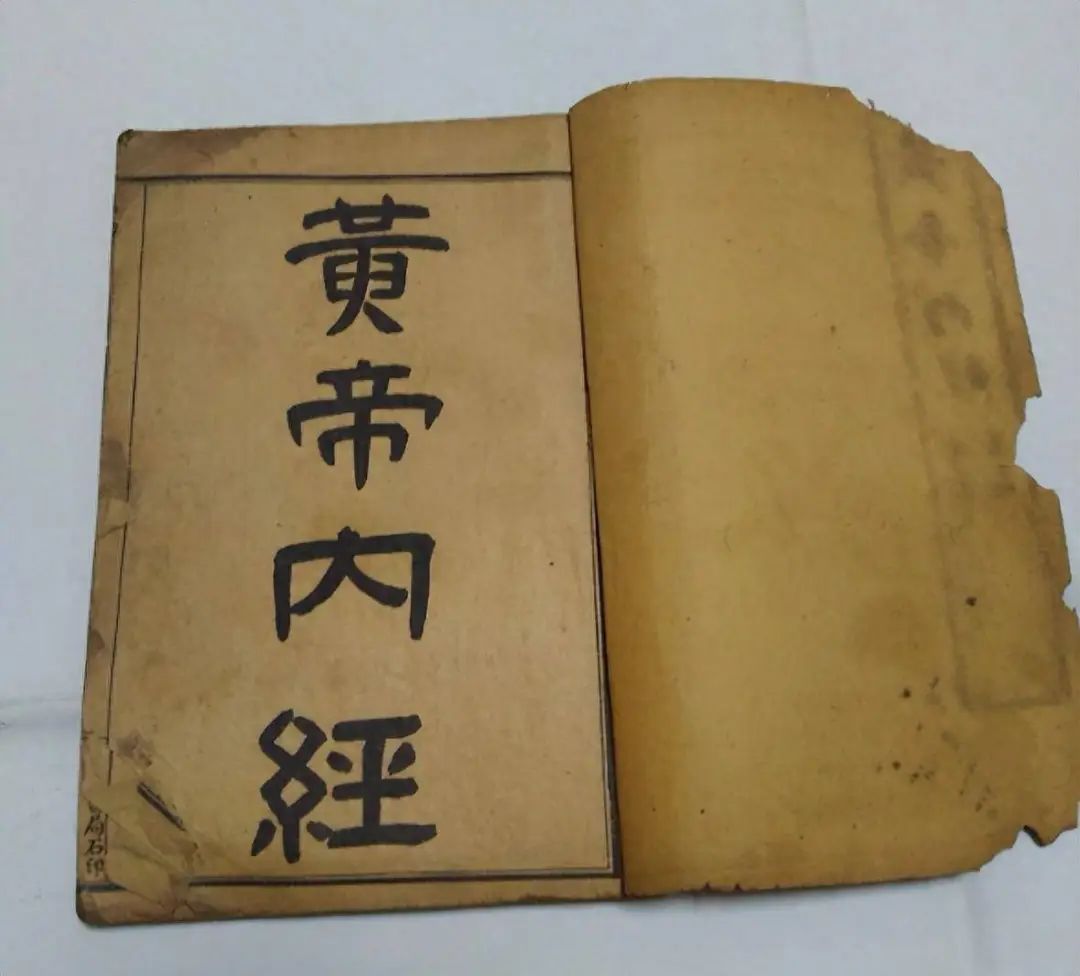 黃帝內經
局石印